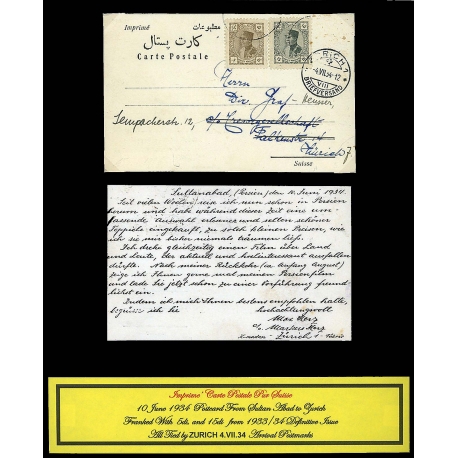 Imprimé مطبوعات
کارت پستال
Carte Postale
ZURICH 1
-4.VII.34-12
VIII
BRIEFVERSAND
Herrn
Dir. Graf-
Sempacherstr. 12, c/o
Falkenstr. 14
Zürich 7
Suisse
Sultanabad, (Persien) den 10. Juni 1934.
Seit vielen Wochen reise ich nun schon in Persien
herum und habe während dieser Zeit eine um-
fassende Auswahl erlesener und selten schöner
Teppiche eingekauft, zu solch kleinen Preisen, wie
ich sie mir bisher niemals träumen liess.
Ich drehe gleichzeitig einen Film über Land
und Leute, der aktuell und hochinteressant ausfallen
dürfte. Nach meiner Rückkehr (ca. Anfang August)
zeige ich Ihnen gerne mal meinen Persienfilm
und lade Sie jetzt schon zu einer Vorführung freund-
lichst ein.
Indem ich mich Ihnen bestens empfohlen halte,
begrüsse ich Sie hochachtungsvoll
Max Herz
c/o Markus Herz
Zürich 1
Imprime' Carte Postale Par Suisse
10 June 1934 Postcard From Sultan Abad to Zurich
Franked With 5ds. and 15ds from 1933/34 Definitive Issue
All Tied by ZURICH 4.VII.34 Arrival Postmarks